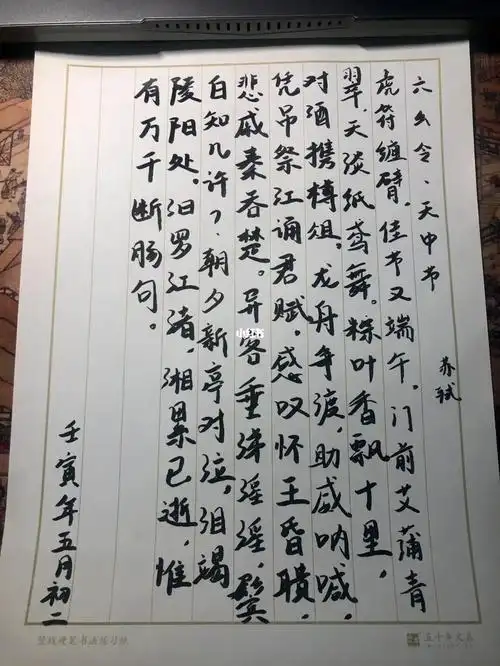 六幺令·天中节
苏轼
虎符缠臂，佳节又端午。门前艾蒲青
翠，天淡纸鸢舞。粽叶香飘十里，
对酒携樽俎。龙舟争渡，助威呐喊，
凭吊祭江诵君赋。感叹怀王昏聩，
悲戚秦吞楚。异客垂涕淫淫，鬓
白知几许？朝夕新亭对泣，泪竭
陵阳处。汨罗江渚，湘累已逝，惟
有万千断肠句。
壬寅年五月初二
小红书
竖线硬笔书法练习纸
五十年文房